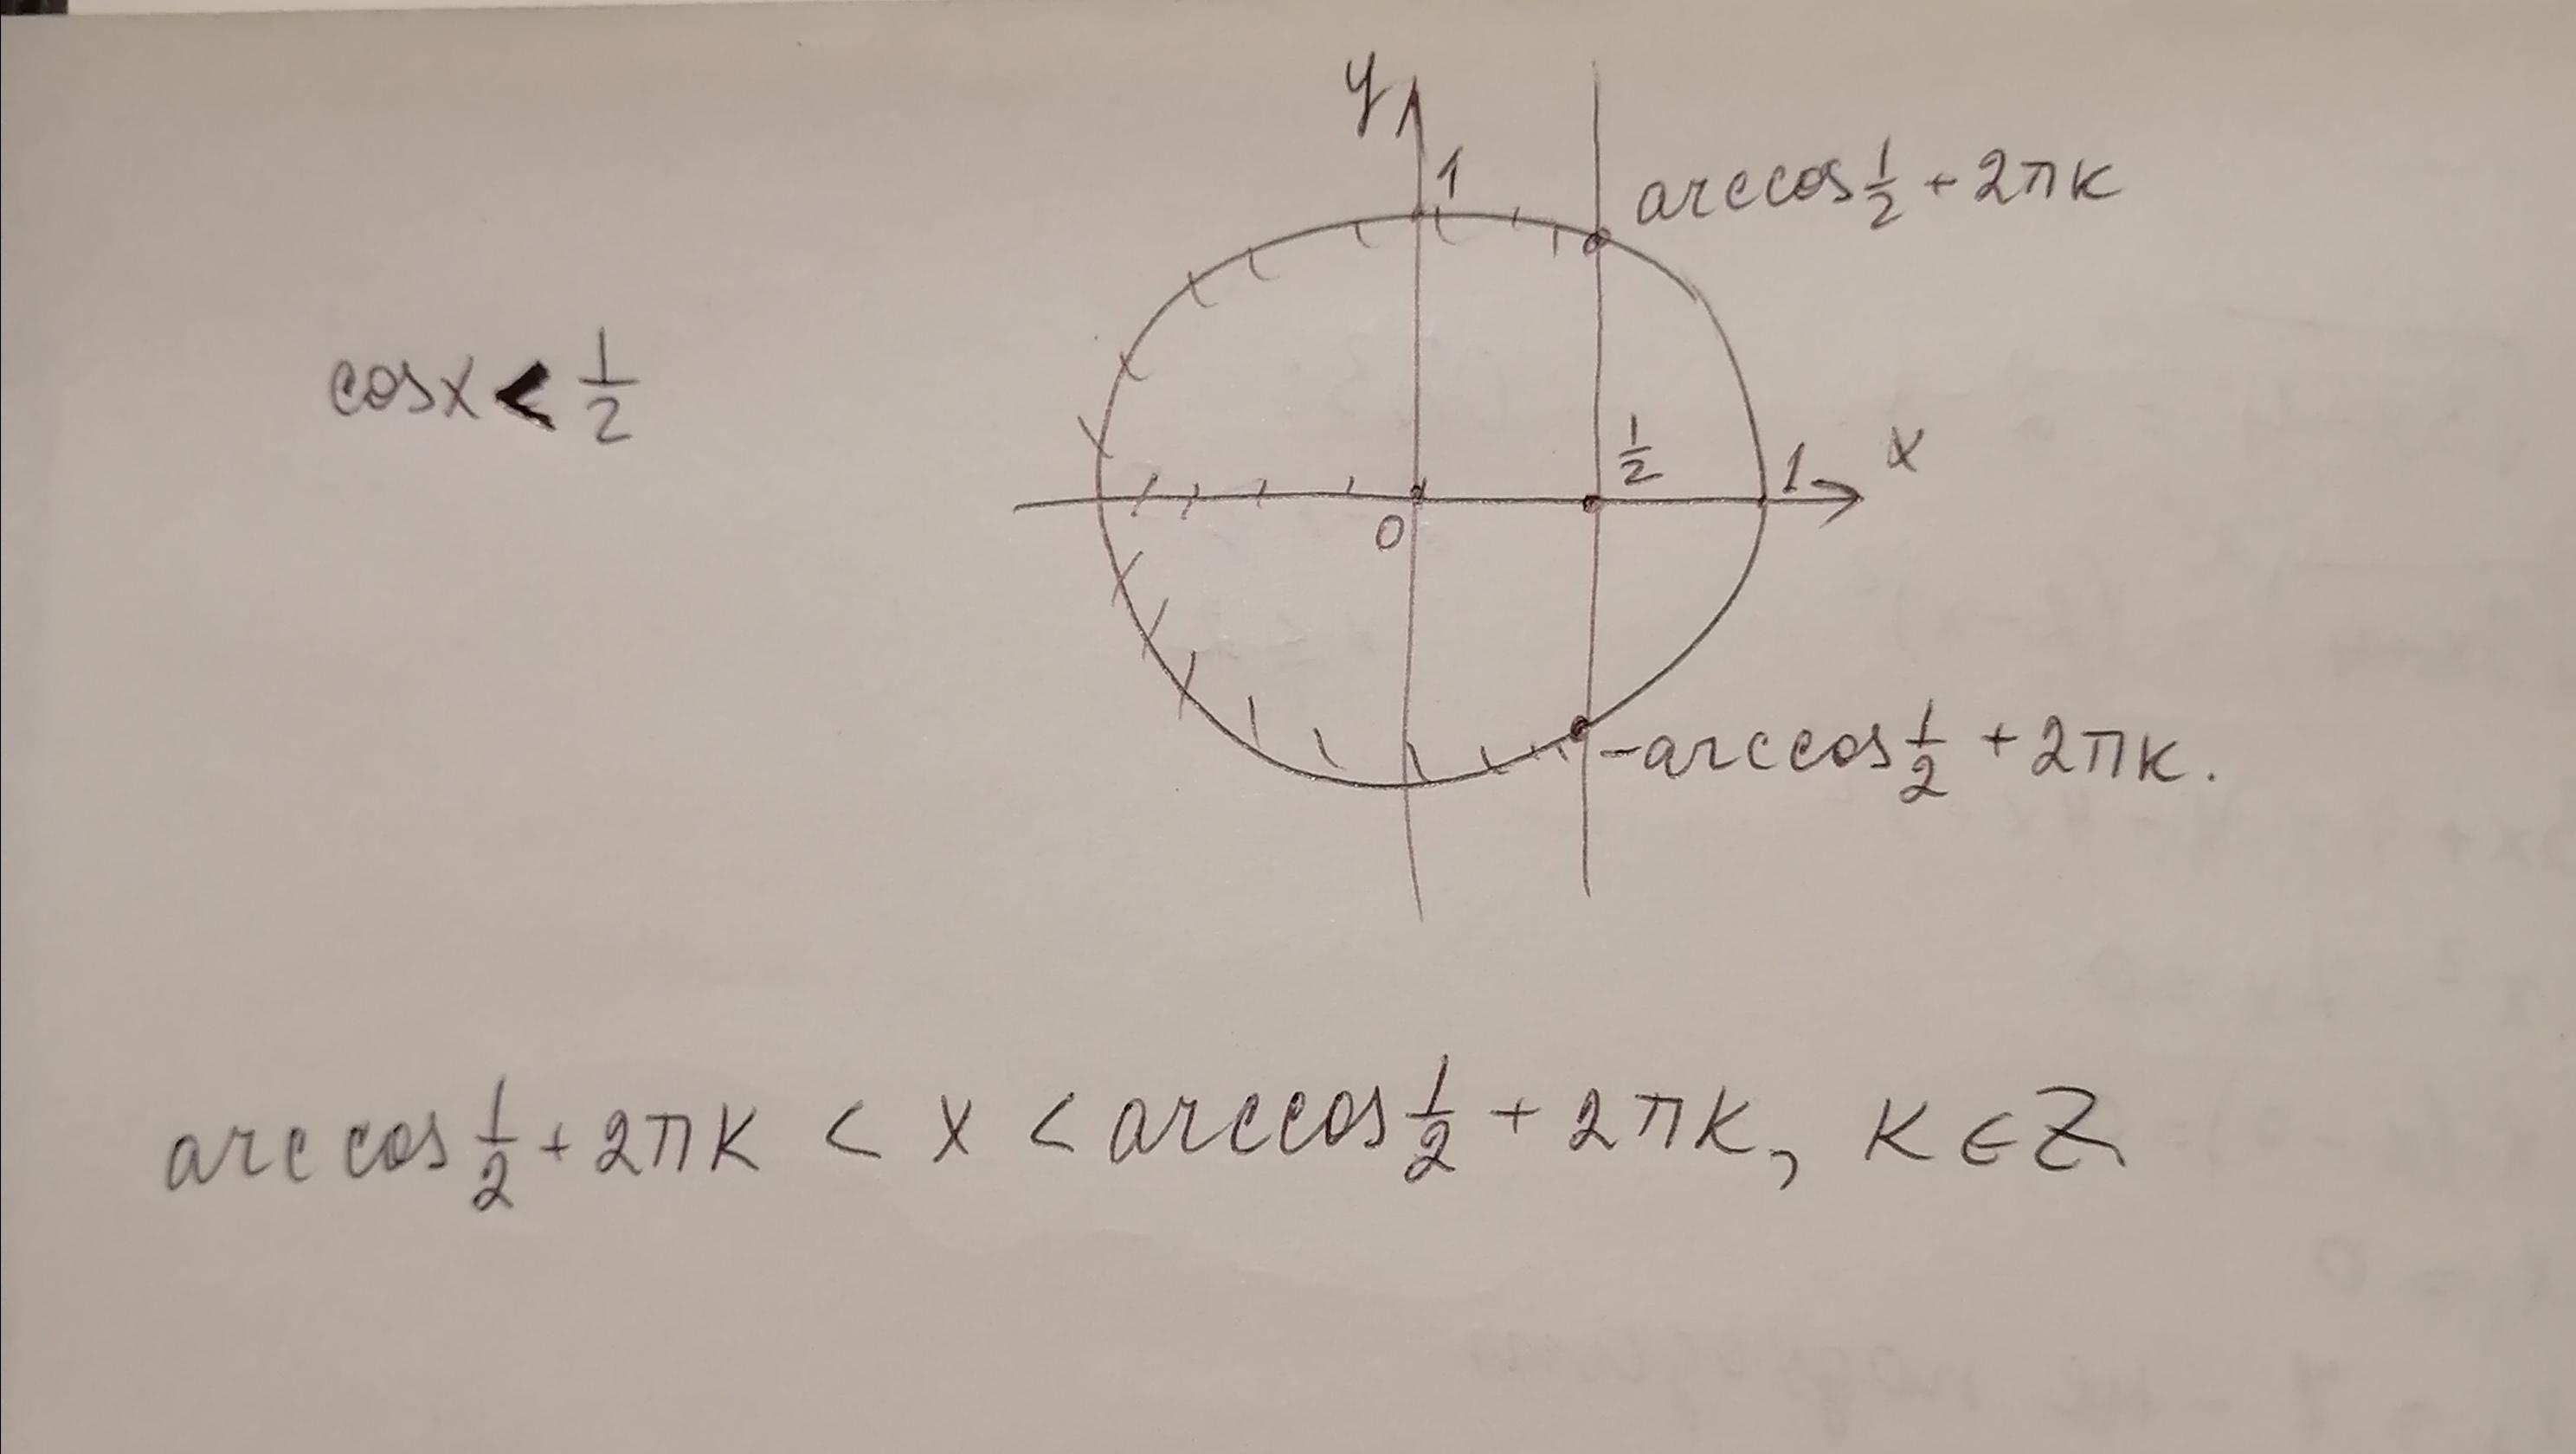 y
1
arccos 1/2 + 2πk
cosx < 1/2
1/2
1
x
0
-arccos 1/2 + 2πk.
arccos 1/2 + 2πk < x < arccos 1/2 + 2πk, k ∈ Z